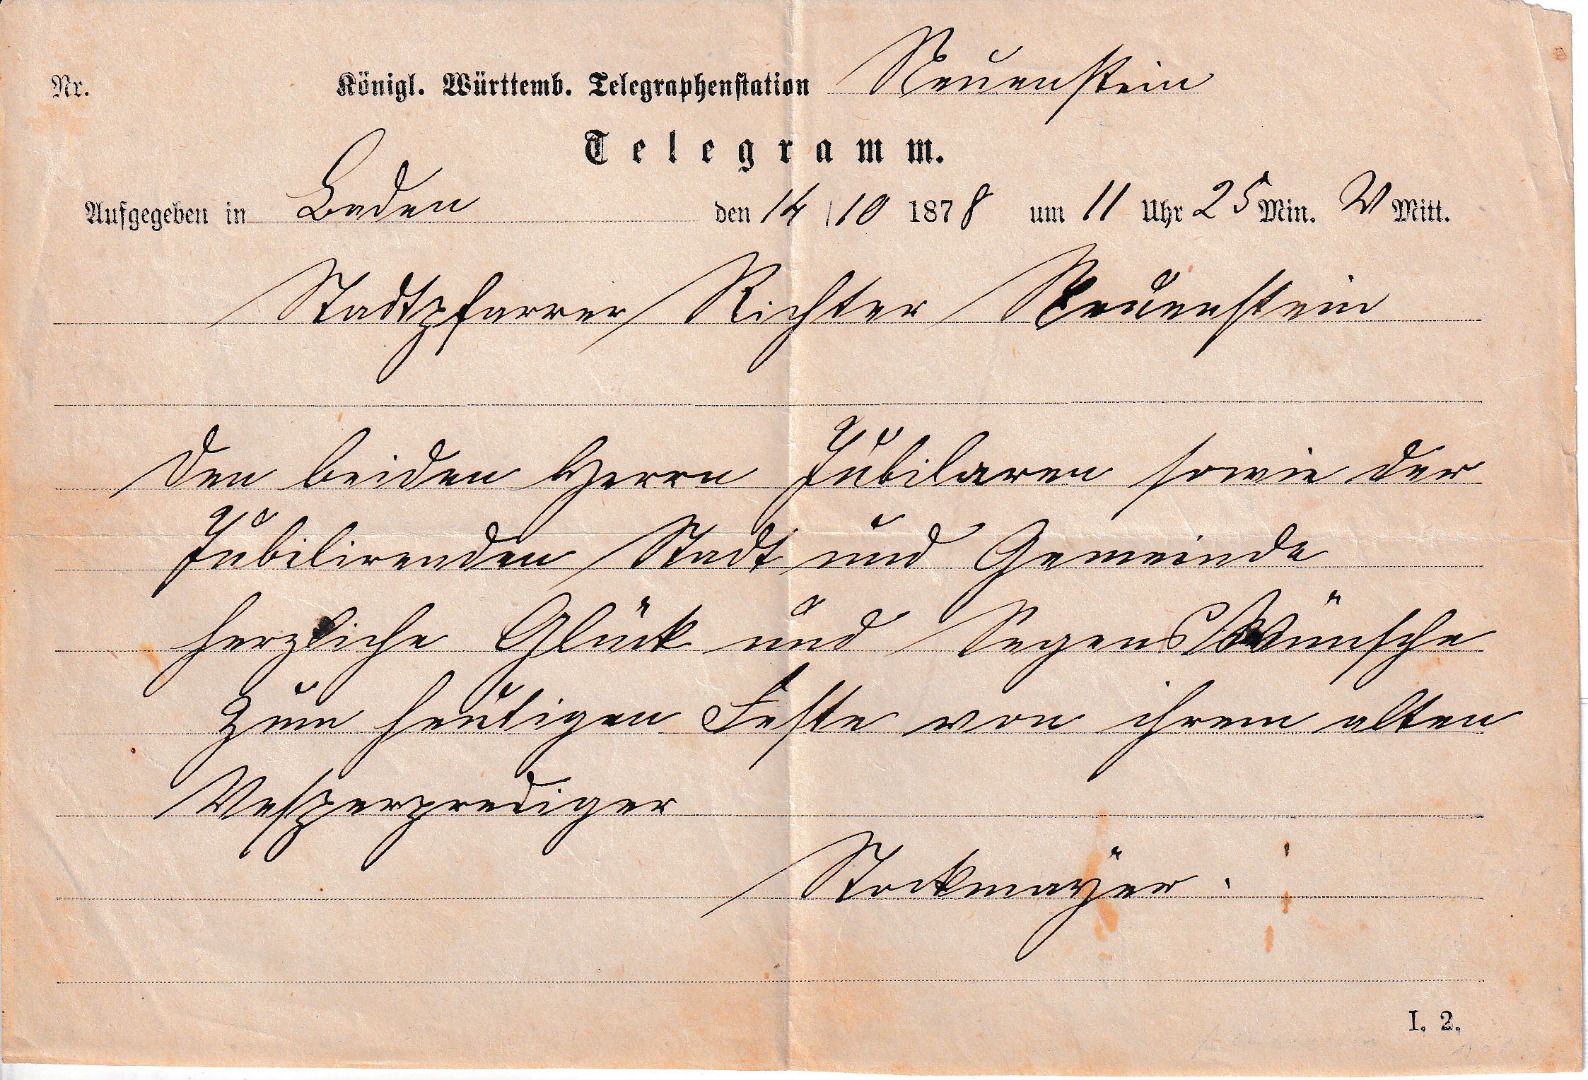 Nr. Königl. Württemb. Telegraphenstation Neuenstein
Telegramm.
Aufgegeben in Baden den 14/10 1878 um 11 Uhr 25 Min. V Mitt.
Stadtpfarrer Richter Neuenstein
Den beiden Herrn Jubilaren sowie der
Jubilirenden Stadt und Gemeinde
herzliche Glück und SegensWünsche
zum heutigen Feste von ihrem alten
Vesperprediger
Stockmayer.
I. 2.